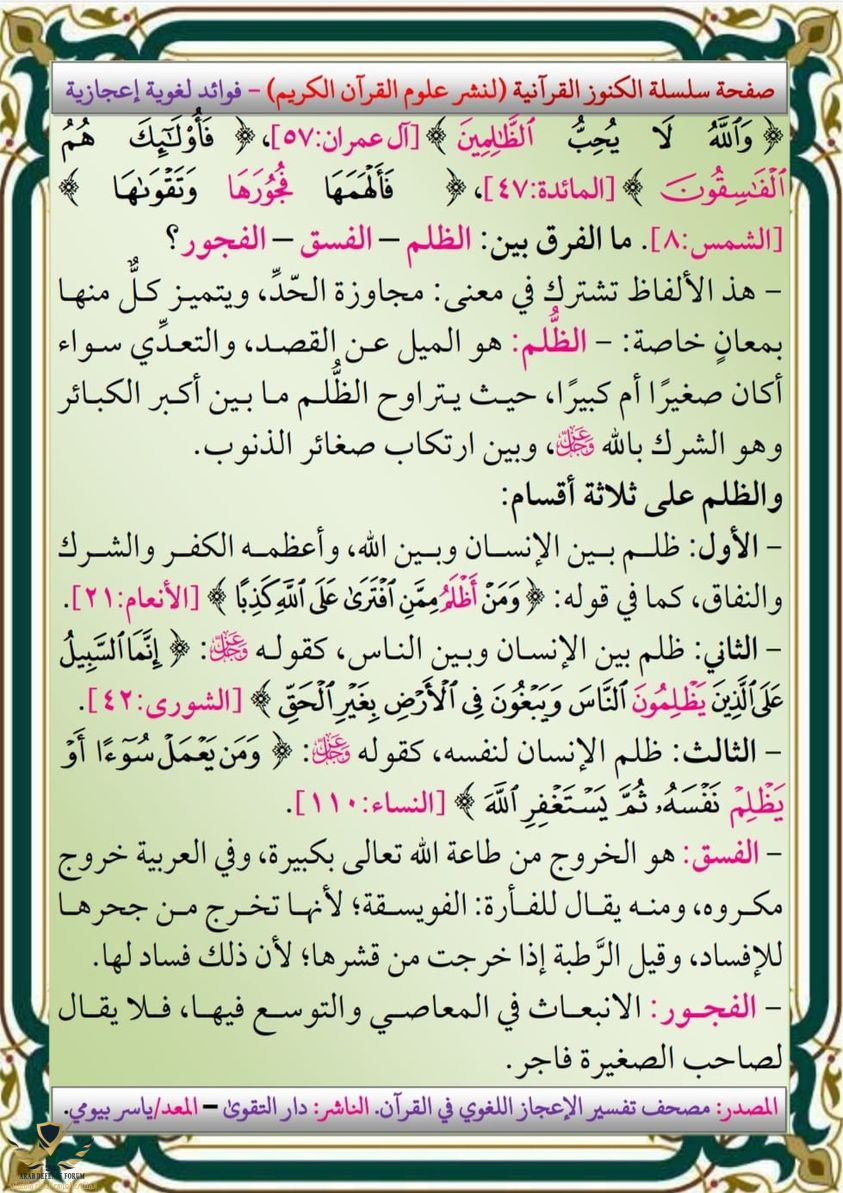 صفحة سلسلة الكنوز القرآنية (لنشر علوم القرآن الكريم) – فوائد لغوية إعجازية
﴿ وَٱللَّهُ لَا يُحِبُّ ٱلظَّـٰلِمِينَ ﴾ [آل عمران:٥٧]، ﴿ فَأُو۟لَـٰٓئِكَ هُمُ
ٱلْفَـٰسِقُونَ ﴾ [المائدة:٤٧]، ﴿ فَأَلْهَمَهَا فُجُورَهَا وَتَقْوَىٰهَا ﴾
[الشمس:٨]. ما الفرق بين: الظلم – الفسق – الفجور؟
– هذ الألفاظ تشترك في معنى: مجاوزة الحّدِّ، ويتميز كلٌّ منها
بمعانٍ خاصة: – الظُّلم: هو الميل عن القصد، والتعدِّي سواء
أكان صغيرًا أم كبيرًا، حيث يتراوح الظُّلم ما بين أكبر الكبائر
وهو الشرك بالله عَزَّ وَجَلَّ، وبين ارتكاب صغائر الذنوب.
والظلم على ثلاثة أقسام:
– الأول: ظلم بين الإنسان وبين الله، وأعظمه الكفر والشرك
والنفاق، كما في قوله: ﴿ وَمَنْ أَظْلَمُ مِمَّنِ ٱفْتَرَىٰ عَلَى ٱللَّهِ كَذِبًا ﴾ [الأنعام:٢١].
– الثاني: ظلم بين الإنسان وبين الناس، كقوله عَزَّ وَجَلَّ: ﴿ إِنَّمَا ٱلسَّبِيلُ
عَلَى ٱلَّذِينَ يَظْلِمُونَ ٱلنَّاسَ وَيَبْغُونَ فِى ٱلْأَرْضِ بِغَيْرِ ٱلْحَقِّ ﴾ [الشورى:٤٢].
– الثالث: ظلم الإنسان لنفسه، كقوله عَزَّ وَجَلَّ: ﴿ وَمَن يَعْمَلْ سُوٓءًا أَوْ
يَظْلِمْ نَفْسَهُۥ ثُمَّ يَسْتَغْفِرِ ٱللَّهَ ﴾ [النساء:١١٠].
– الفسق: هو الخروج من طاعة الله تعالى بكبيرة، وفي العربية خروج
مكروه، ومنه يقال للفأرة: الفويسقة؛ لأنها تخرج من جحرها
للإفساد، وقيل الرَّطبة إذا خرجت من قشرها؛ لأن ذلك فساد لها.
– الفجور: الانبعاث في المعاصي والتوسع فيها، فلا يقال
لصاحب الصغيرة فاجر.
المصدر: مصحف تفسير الإعجاز اللغوي في القرآن. الناشر: دار التقوىٰ – المعد/ياسر بيومي.
ARAB DEFENSE FORUM